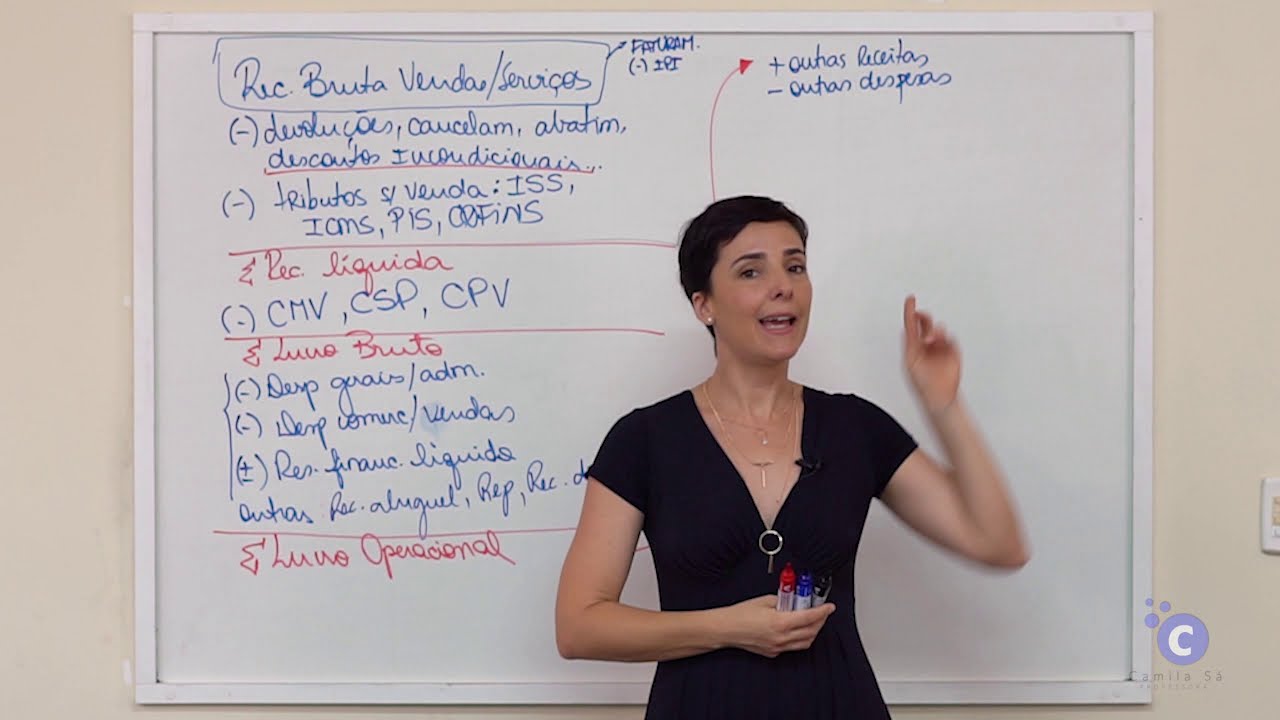 Rec. Bruta Vendas/Serviços
FATURAM.
(-) IPI
(-) devoluções, cancelam, abatim,
descontos Incondicionais...
(-) tributos s/ venda: ISS,
ICMS, PIS, COFINS
Σ Rec. líquida
(-) CMV, CSP, CPV
Σ Lucro Bruto
(-) Desp gerais/adm.
(-) Desp comerc/vendas
(±) Res. financ. líquido
outras Rec. aluguel, Rep, Rec. d
Σ Lucro Operacional
+ outras Receitas
- outras despesas
C
Camila Sá
PROFESSORA